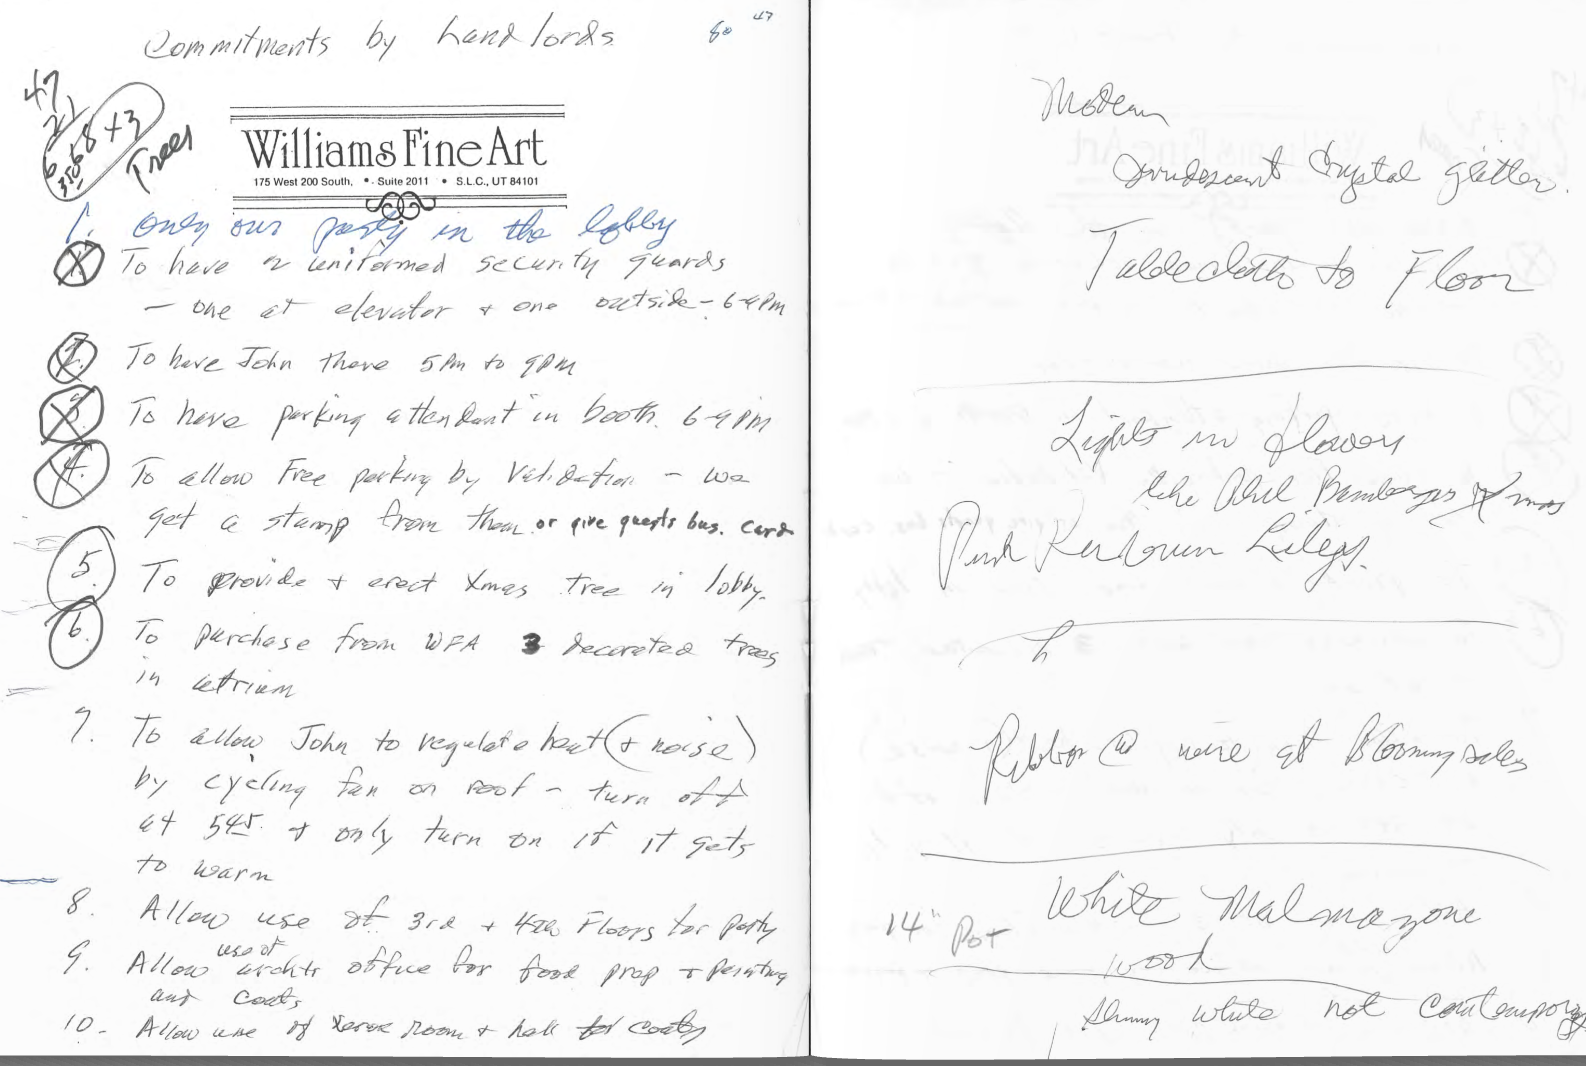 Commitments by Landlords
80 47
47
21
68+3
6
3506
Trees
Williams Fine Art
175 West 200 South, • Suite 2011 • S.L.C., UT 84101
1. Only our party in the lobby
1. To have 2 uniformed security guards
- one at elevator + one outside - 6-9 Pm
2. To have John there 5 Pm to 9 PM
3. To have parking attendant in booth. 6-9 PM
4. To allow Free parking by Validation - we
get a stamp from them or give guests bus. card
5. To provide + erect Xmas tree in lobby.
6. To purchase from WFA 3 decorated trees
in atrium
7. To allow John to regulate heat (+ noise)
by cycling fan on roof - turn off
at 545. + only turn on if it gets
to warm
8. Allow use of 3rd + 4th Floors for party
use of
9. Allow archts office for food prep +
and coats
10. Allow use of Xerox room + hall for coats
Modern
Crystal glitter.
Tablecloth to Floor
Lights in flowers
like Bambergers Xmas
Pink
Ribbon @ wire at Bloomingdales
White
14" Pot
wood
white not contemporary